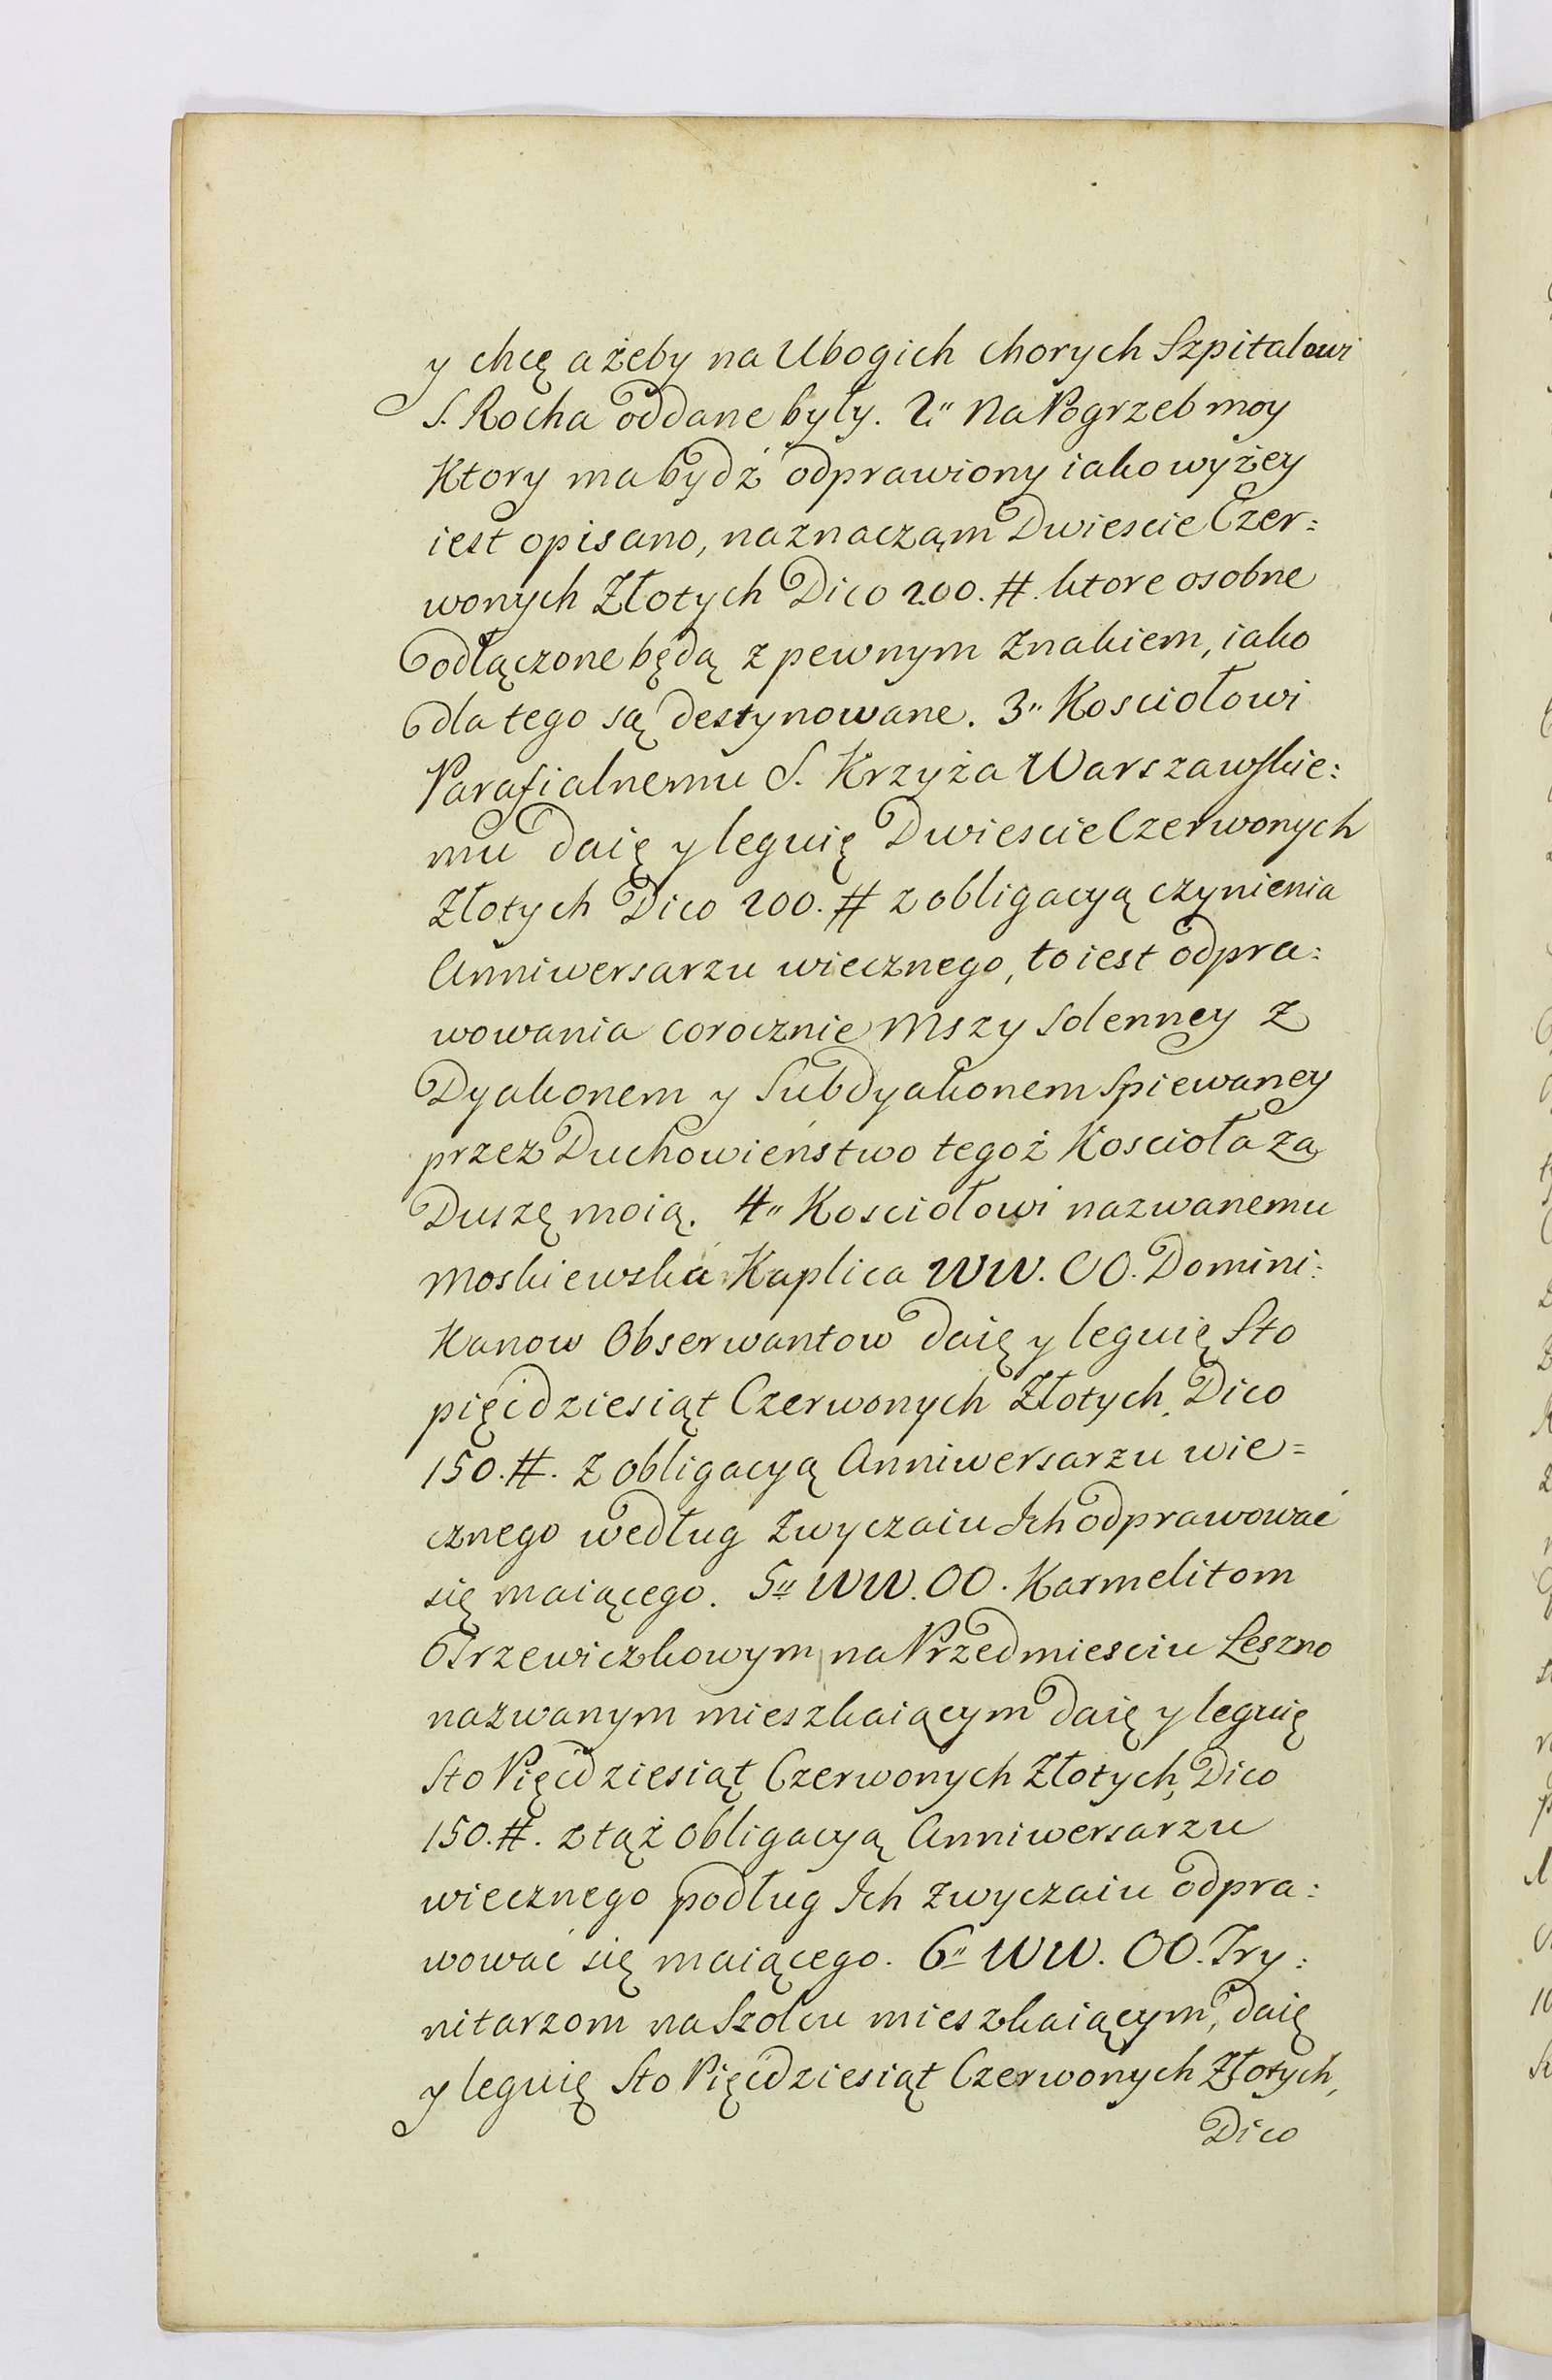 y chcę ażeby na Ubogich chorych Szpitalowi
S. Rocha oddane były. 2" Na Pogrzeb moy
Ktory ma bydź odprawiony iako wyżey
iest opisano, naznacząm Dwiescie Czer:
wonych Złotych Dico 200. #. ktore osobne
odłączone będą z pewnym Znakiem, iako
dla tego są destynowane. 3" Kosciołowi
Parafialnemu S. Krzyża Warszawskie:
mu daię y leguię Dwiescie Czerwonych
Złotych Dico 200. # z obligacyą czynienia
Anniwersarzu wiecznego, to iest odpra:
wowania corocznie Mszy Solenney z
Dyakonem y Subdyakonem Spiewaney
przez Duchowieństwo tegoż Kościoła za
Duszę moią. 4" Kosciołowi nazwanemu
Moskiewska Kaplica WW. OO. Domini:
Kanow Obserwantow daię y leguię Sto
pięćdziesiąt Czerwonych Złotych, Dico
150. #. z obligacyą Anniwersarzu wie=
cznego według Zwyczaiu Ich odprawować
się maiącego. 5" WW. OO. Karmelitom
Trzewiczkowym na Przedmiesciu Leszno
nazwanym mieszkaiącym daię y leguię
Sto Pięćdziesiąt Czerwonych Złotych, Dico
150. #. z tąż obligacyą Anniwersarzu
wiecznego podług Ich zwyczaiu odpra:
wować się maiącego. 6" WW. OO. Try:
nitarzom na Szolcu mieszkaiącym, daię
y leguię Sto Pięćdziesiąt Czerwonych Złotych,
Dico